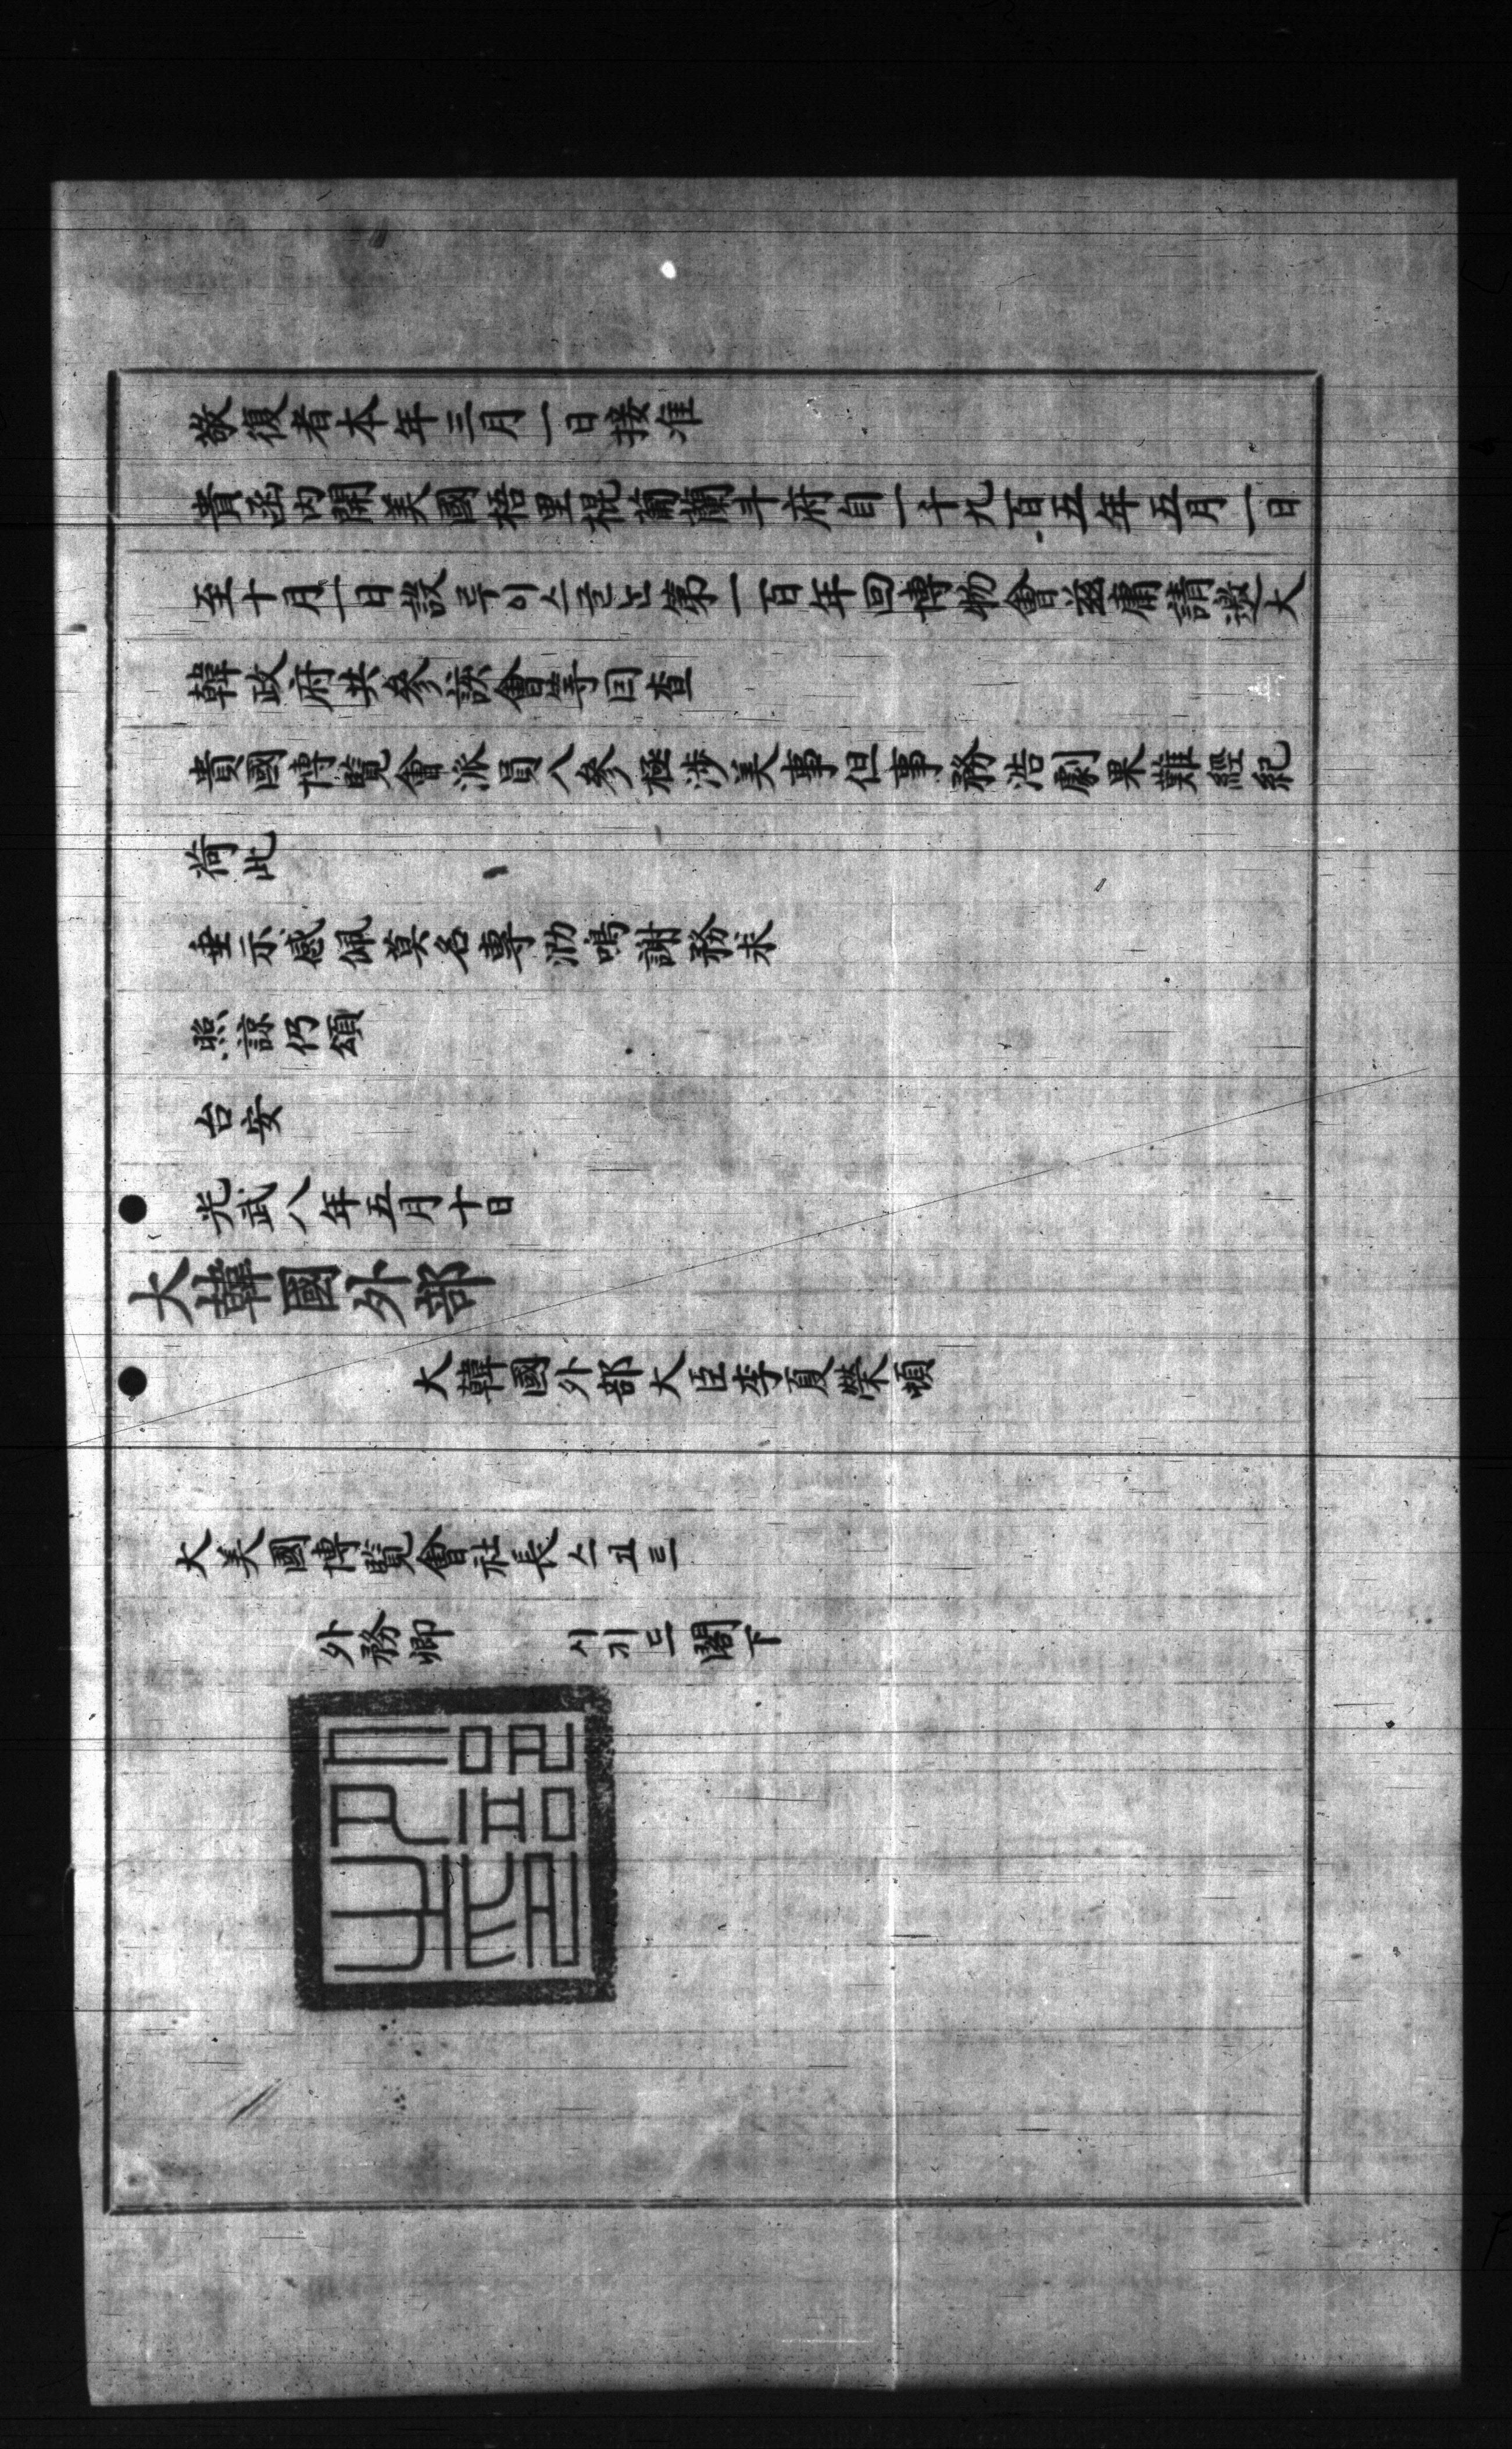 敬復者本年三月一日接准
貴函內開美國梧里棍葡蘭斗府自一千九百五年五月一日
至十月一日設루이스클납第一百年回博物會玆庸請邀大
韓政府共參該會等因查
貴國博覽會派員入參極涉美事但事務浩劇果難經紀
荷此
垂示感佩莫名專泐鳴謝務求
照諒仍頌
台安
光武八年五月十日
大韓國外部
大韓國外部大臣李夏榮頓
大美國博覽會社長스고트
外務卿 시기드閣下